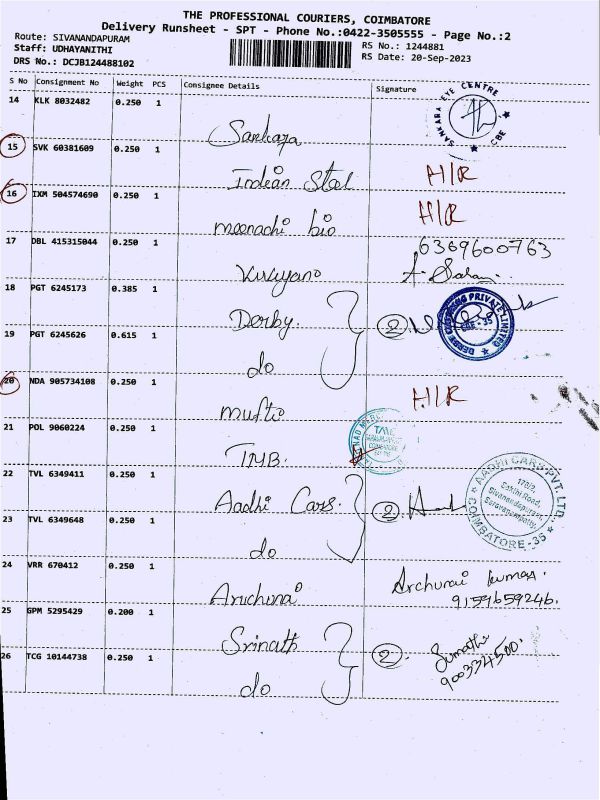 THE PROFESSIONAL COURIERS, COIMBATORE
Delivery Runsheet - SPT - Phone No.:0422-3505555 - Page No.:2
Route: SIVANANDAPURAM
Staff: UDHAYANITHI
DRS No.: DCJB124488102
RS No.: 1244881
RS Date: 20-Sep-2023
S No Consignment No Weight PCS Consignee Details Signature
14 KLK 8032482 0.250 1
Sankara
SANKARA EYE CENTRE
CBE
15 SVK 60381609 0.250 1
Indian Steel H/R
16 IXM 504574690 0.250 1
meenachi bio H/R
17 DBL 415315044 0.250 1
6369600763
18 PGT 6245173 0.385 1
Derby. 2
DERBY CLOTHING PRIVATE LIMITED
CBE - 35
19 PGT 6245626 0.615 1
do
20 NDA 905734108 0.250 1
mufti H/R
21 POL 9060224 0.250 1
TMB.
22 TVL 6349411 0.250 1
Aadhi Cars. 2
AADHI CARS PVT. LTD.
170/2,
Sakthi Road,
Sivanandapuram,
Saravanampatty,
COIMBATORE-35
23 TVL 6349648 0.250 1
do
24 VRR 670412 0.250 1
Archunai kumar.
9159659246.
25 GPM 5295429 0.200 1
Srinath
26 TCG 10144738 0.250 1
2. Sumathi
900334500.
do